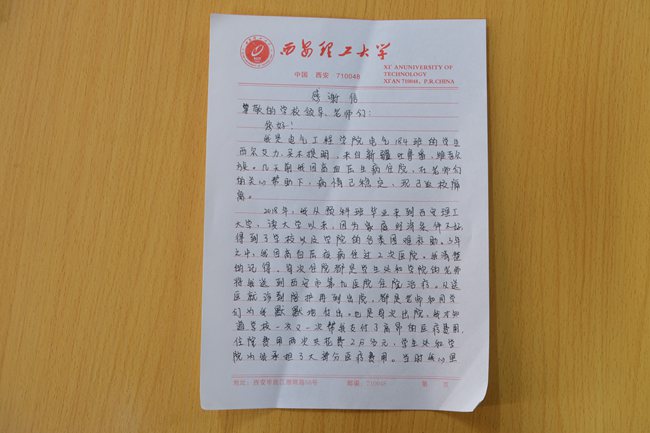 西安理工大学
中国 西安 710048
XI' AN UNIVERSITY OF
TECHNOLOGY
XI'AN 710048, P.R.CHINA
感谢信
尊敬的学校领导、老师们:
您好!
我是电气工程学院电气184班的学生
西尔艾力·买木提明,来自新疆吐鲁番,维吾尔
族。几天前我因高血压生病住院,在老师们
的关心帮助下,病情已稳定,现已返校隔
离。
2018年,我从预科班毕业来到西安理工
大学,读大学以来,因为家庭经济条件不好
得到了学校以及学院的各类困难补助。3年
之中,我因高血压疾病住过2次医院。我清楚
的记得,首次住院都是学生处和学院的老师
将我送到西安市第九医院住院治疗。从送
医就诊到陪护再到出院,都是老师和同学
们为我默默地付出。也是首次出院,我才知
道学校一次又一次帮我支付了高昂的医疗费用,
住院费用两次共花费2万多元,学生处和学
院为我承担了大部分医疗费用。当时我心里
地址:西安市金花南路58号 邮编:710048 第 页